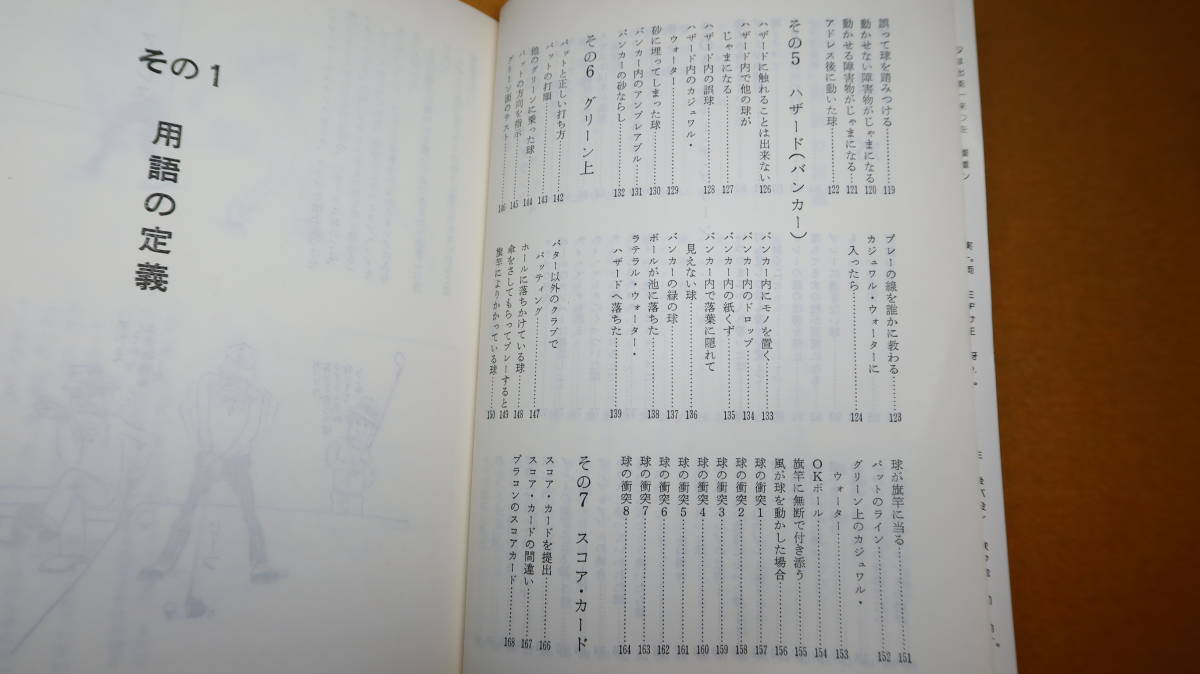 誤って球を踏みつける……119
動かせない障害物がじゃまになる……120
動かせる障害物がじゃまになる……121
アドレス後に動いた球……122
プレーの線を誰かに教わる……123
カジュワル・ウォーターに
入ったら……124
その5 ハザード(バンカー)
ハザードに触れることは出来ない……126
ハザード内で他の球が
じゃまになる……127
ハザード内の誤球……128
ハザード内のカジュワル・
ウォーター……129
砂に埋ってしまった球……130
バンカー内のアンプレアブル……131
バンカーの砂ならし……132
バンカー内にモノを置く……133
バンカー内のドロップ……134
バンカー内の紙くず……135
バンカー内で落葉に隠れて
見えない球……136
バンカーの縁の球……137
ボールが池に落ちた……138
ラテラル・ウォーター・
ハザードへ落ちた……139
その6 グリーン上
パットと正しい打ち方……142
パットの打順……143
他のグリーンに乗った球……144
パットの方向を指示……145
グリーン面のテスト……146
パター以外のクラブで
パッティング……147
ホールに落ちかけている球……148
傘をさしてもらってプレーすると……149
旗竿によりかかっている球……150
球が旗竿に当る……151
パットのライン……152
グリーン上のカジュワル・
ウォーター……153
OKボール……154
旗竿に無断で付き添う……155
風が球を動かした場合……156
球の衝突1……157
球の衝突2……158
球の衝突3……159
球の衝突4……160
球の衝突5……161
球の衝突6……162
球の衝突7……163
球の衝突8……164
その7 スコア・カード
スコア・カードを提出……166
スコア・カードの間違い……167
ブラコンのスコアカード……168
その1 用語の定義